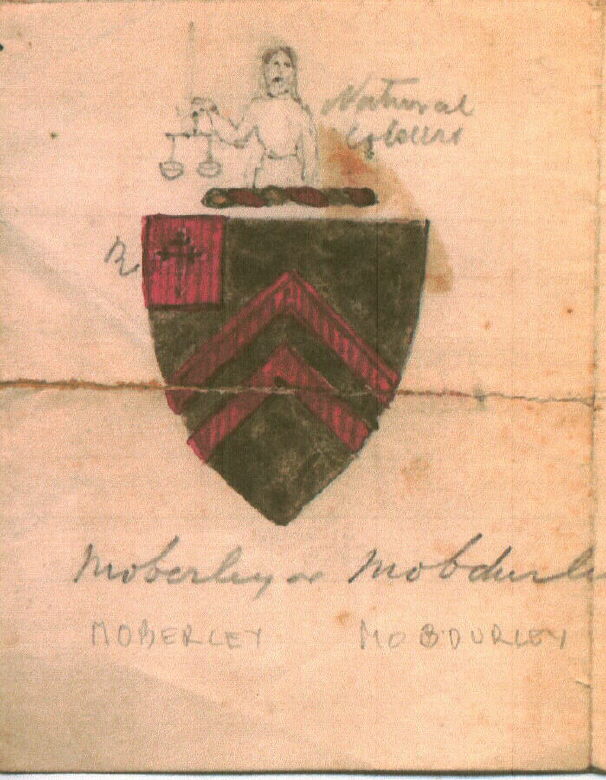 Natural
Colours
R
Moberley or Mobdurle
MOBERLEY MOBDURLEY